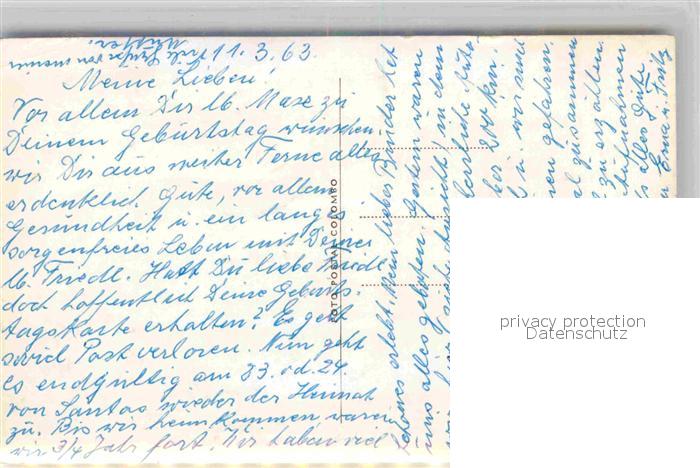 11.3.63.
Meine Lieben!
Vor allem Dir lb. Maxe zu
Deinem Geburtstag wünschen
wir Dir aus weiter Ferne alles
erdenklich Gute, vor allem
Gesundheit u. ein langes
sorgenfreies Leben mit Deiner
lb. Friedl. Hatt Du liebe Friedl
doch hoffentlich Deine Geburts-
tagskarte erhalten? Es geht
soviel Post verloren. Nun geht
es endgültig am 23. od. 24.
von Santos wieder der Heimat
zu. Bis wir heimkommen waren
wir 3/4 Jahr fort. Wir haben viel
Schönes erlebt, Mein lieber Bruder hat
uns alles geboten. Gestern waren
in dem
über 200 km.
u. wir sind
gefahren.
zusammen
zu erzählen.
Aufnahmen
alles Gute
Erna u. Fritz
FOTO POSTAL COLOMBO
privacy protection
Datenschutz